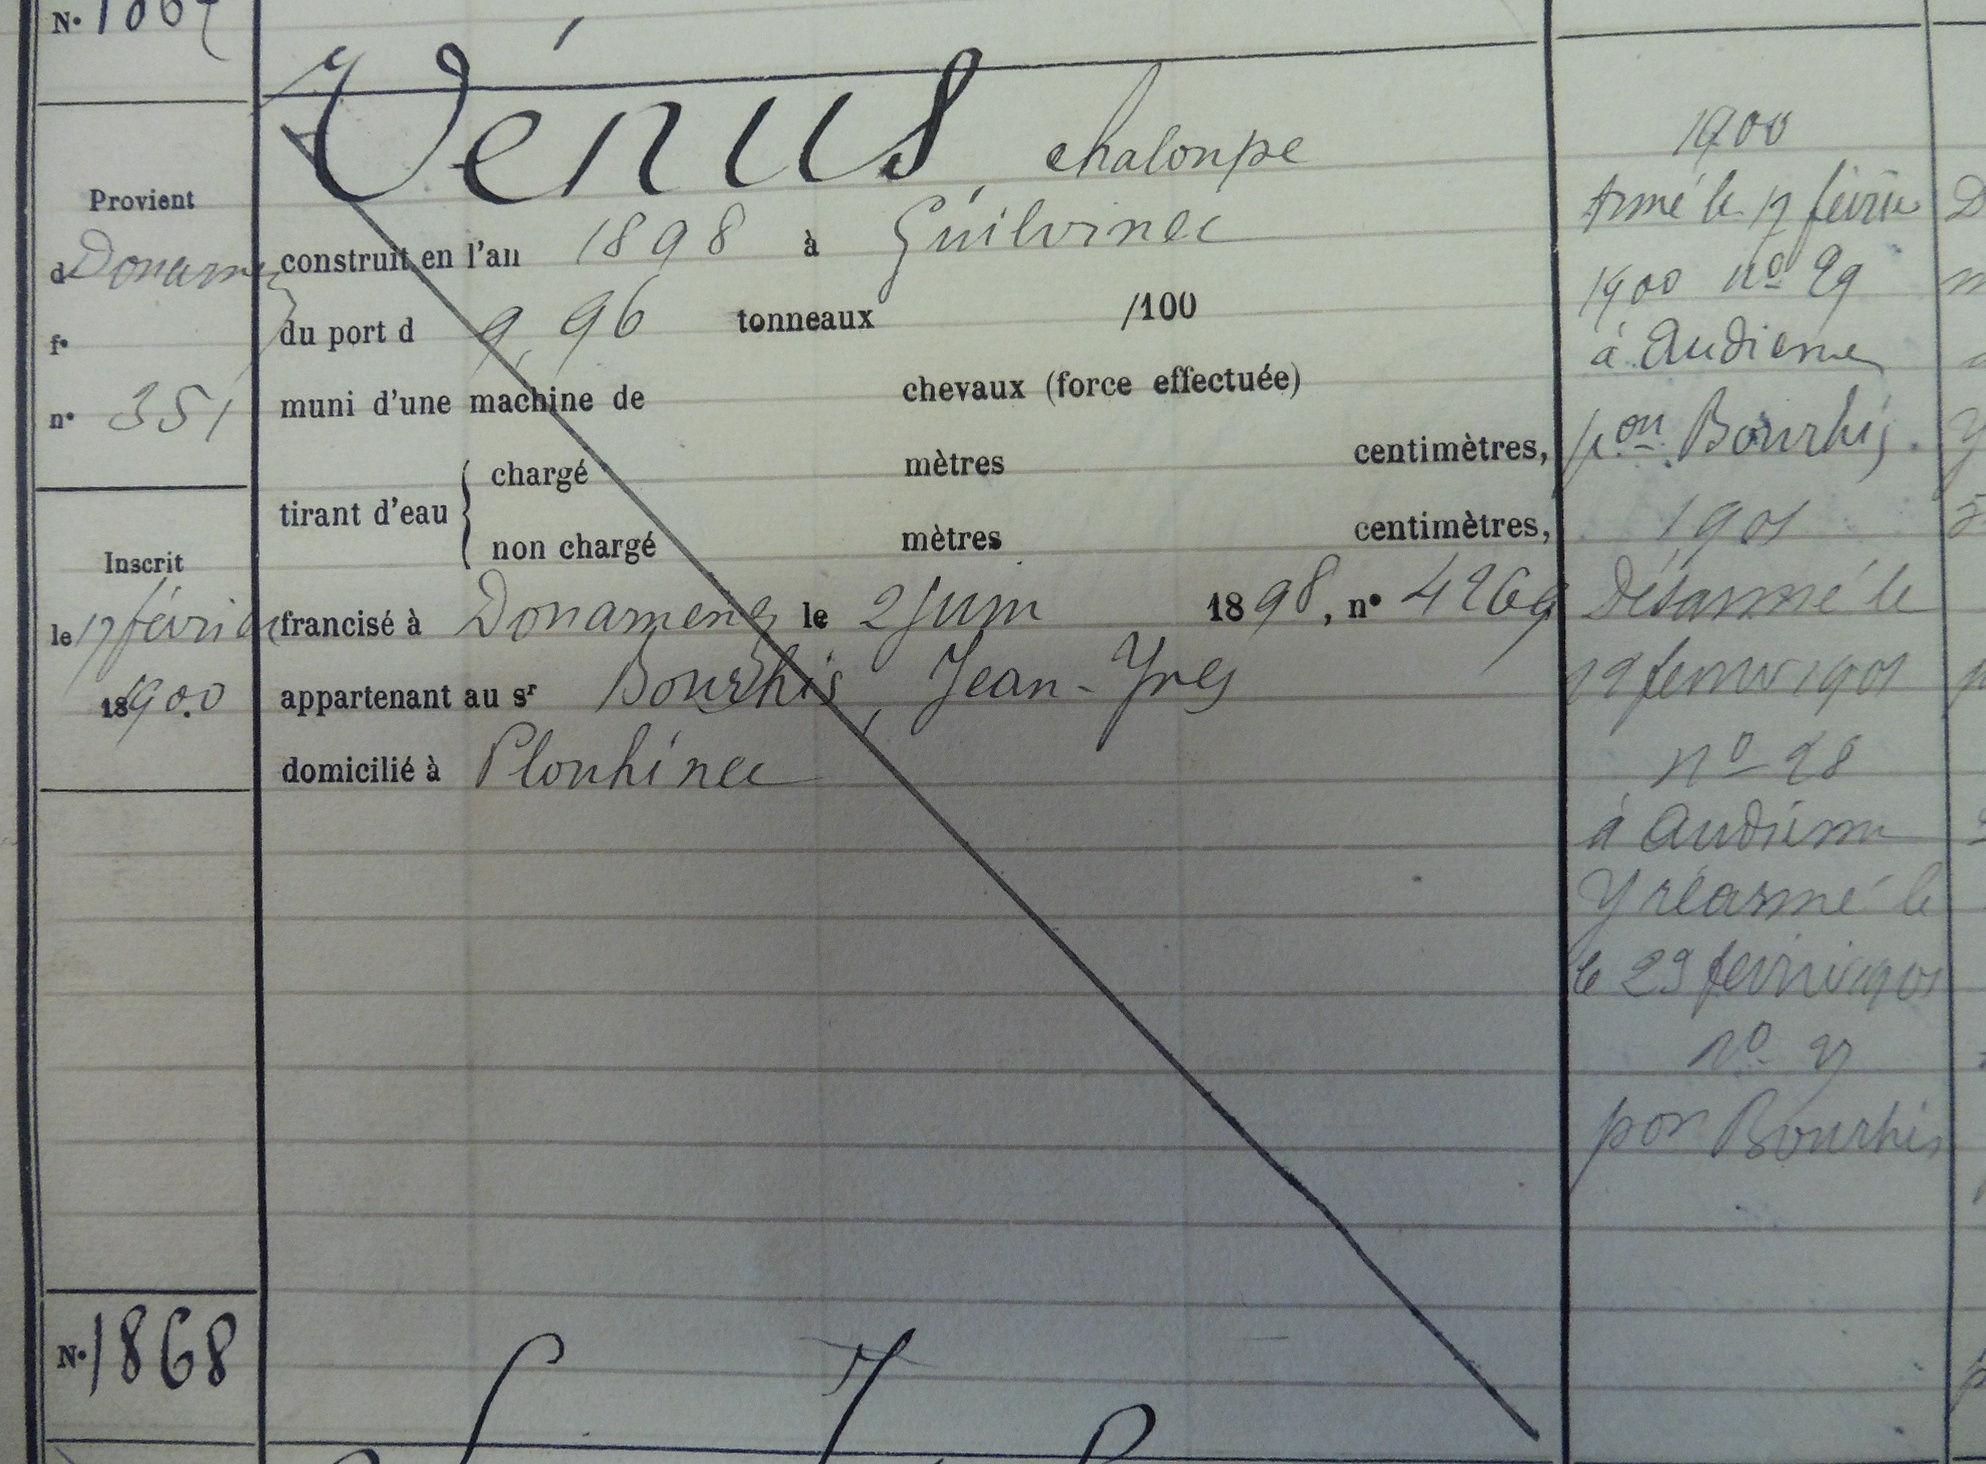 N° 1867
Vénus chaloupe
Provient
d Douarnenez
f°
n° 351
construit en l'an 1898 à Guilvinec
du port d 9,96 tonneaux /100
muni d'une machine de chevaux (force effectuée)
tirant d'eau { chargé mètres centimètres,
non chargé mètres centimètres,
Inscrit
le 17 février
18 1900
francisé à Douarnenez le 2 Juin 1898, n° 4269
appartenant au sr Bourhis, Jean-Yves
domicilié à Plouhinec
1900
Armé le 17 février
1900 n° 29
à Audierne
pon Bourhis.
1901
Désarmé le
février 1901
n° 28
à Audierne
Y réarmé le
le 23 février 1901
n° 27
pon Bourhis
N° 1868